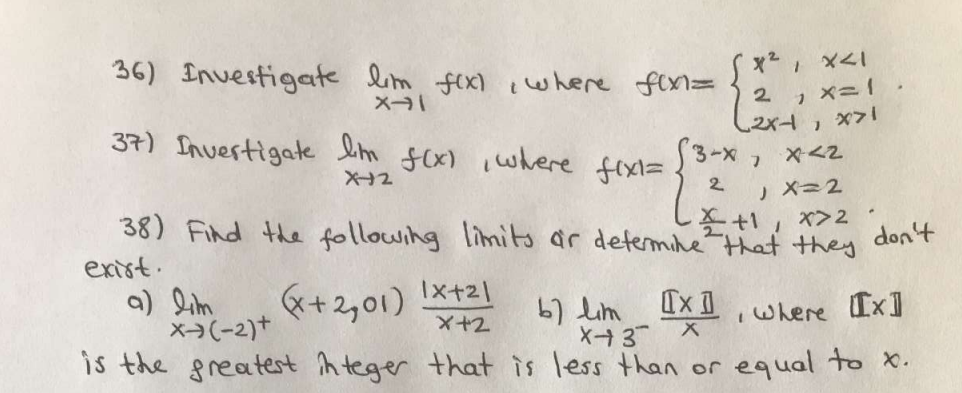 36) Investigate lim x→1 f(x) , where f(x)= { x² , x<1
2 , x=1 .
2x-1 , x>1
37) Investigate lim x→2 f(x) , where f(x)= { 3-x , x<2
2 , x=2
x/2 +1 , x>2 .
38) Find the following limits or determine that they don't
exist.
a) lim x→(-2)+ (x+2,01) |x+2|/x+2 b) lim x→3⁻ ⟦x⟧/x , where ⟦x⟧
is the greatest integer that is less than or equal to x.